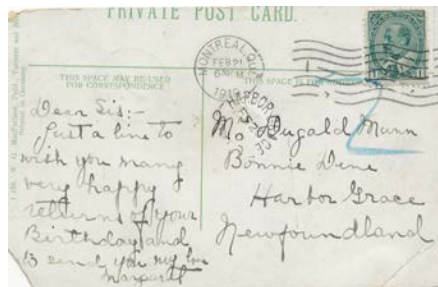 PRIVATE POST CARD.
THIS SPACE MAY BE USED
FOR CORRESPONDENCE
THIS SPACE IS FOR
MONTREAL, QUE.
FEB 21
HARBOR
Dear Sis:-
Just a line to
wish you many
very happy
returns of your
Birthday and
to send you my love
Margaret
Mrs Dugald Munn
Bonnie Dene
Harbor Grace
Newfoundland
2